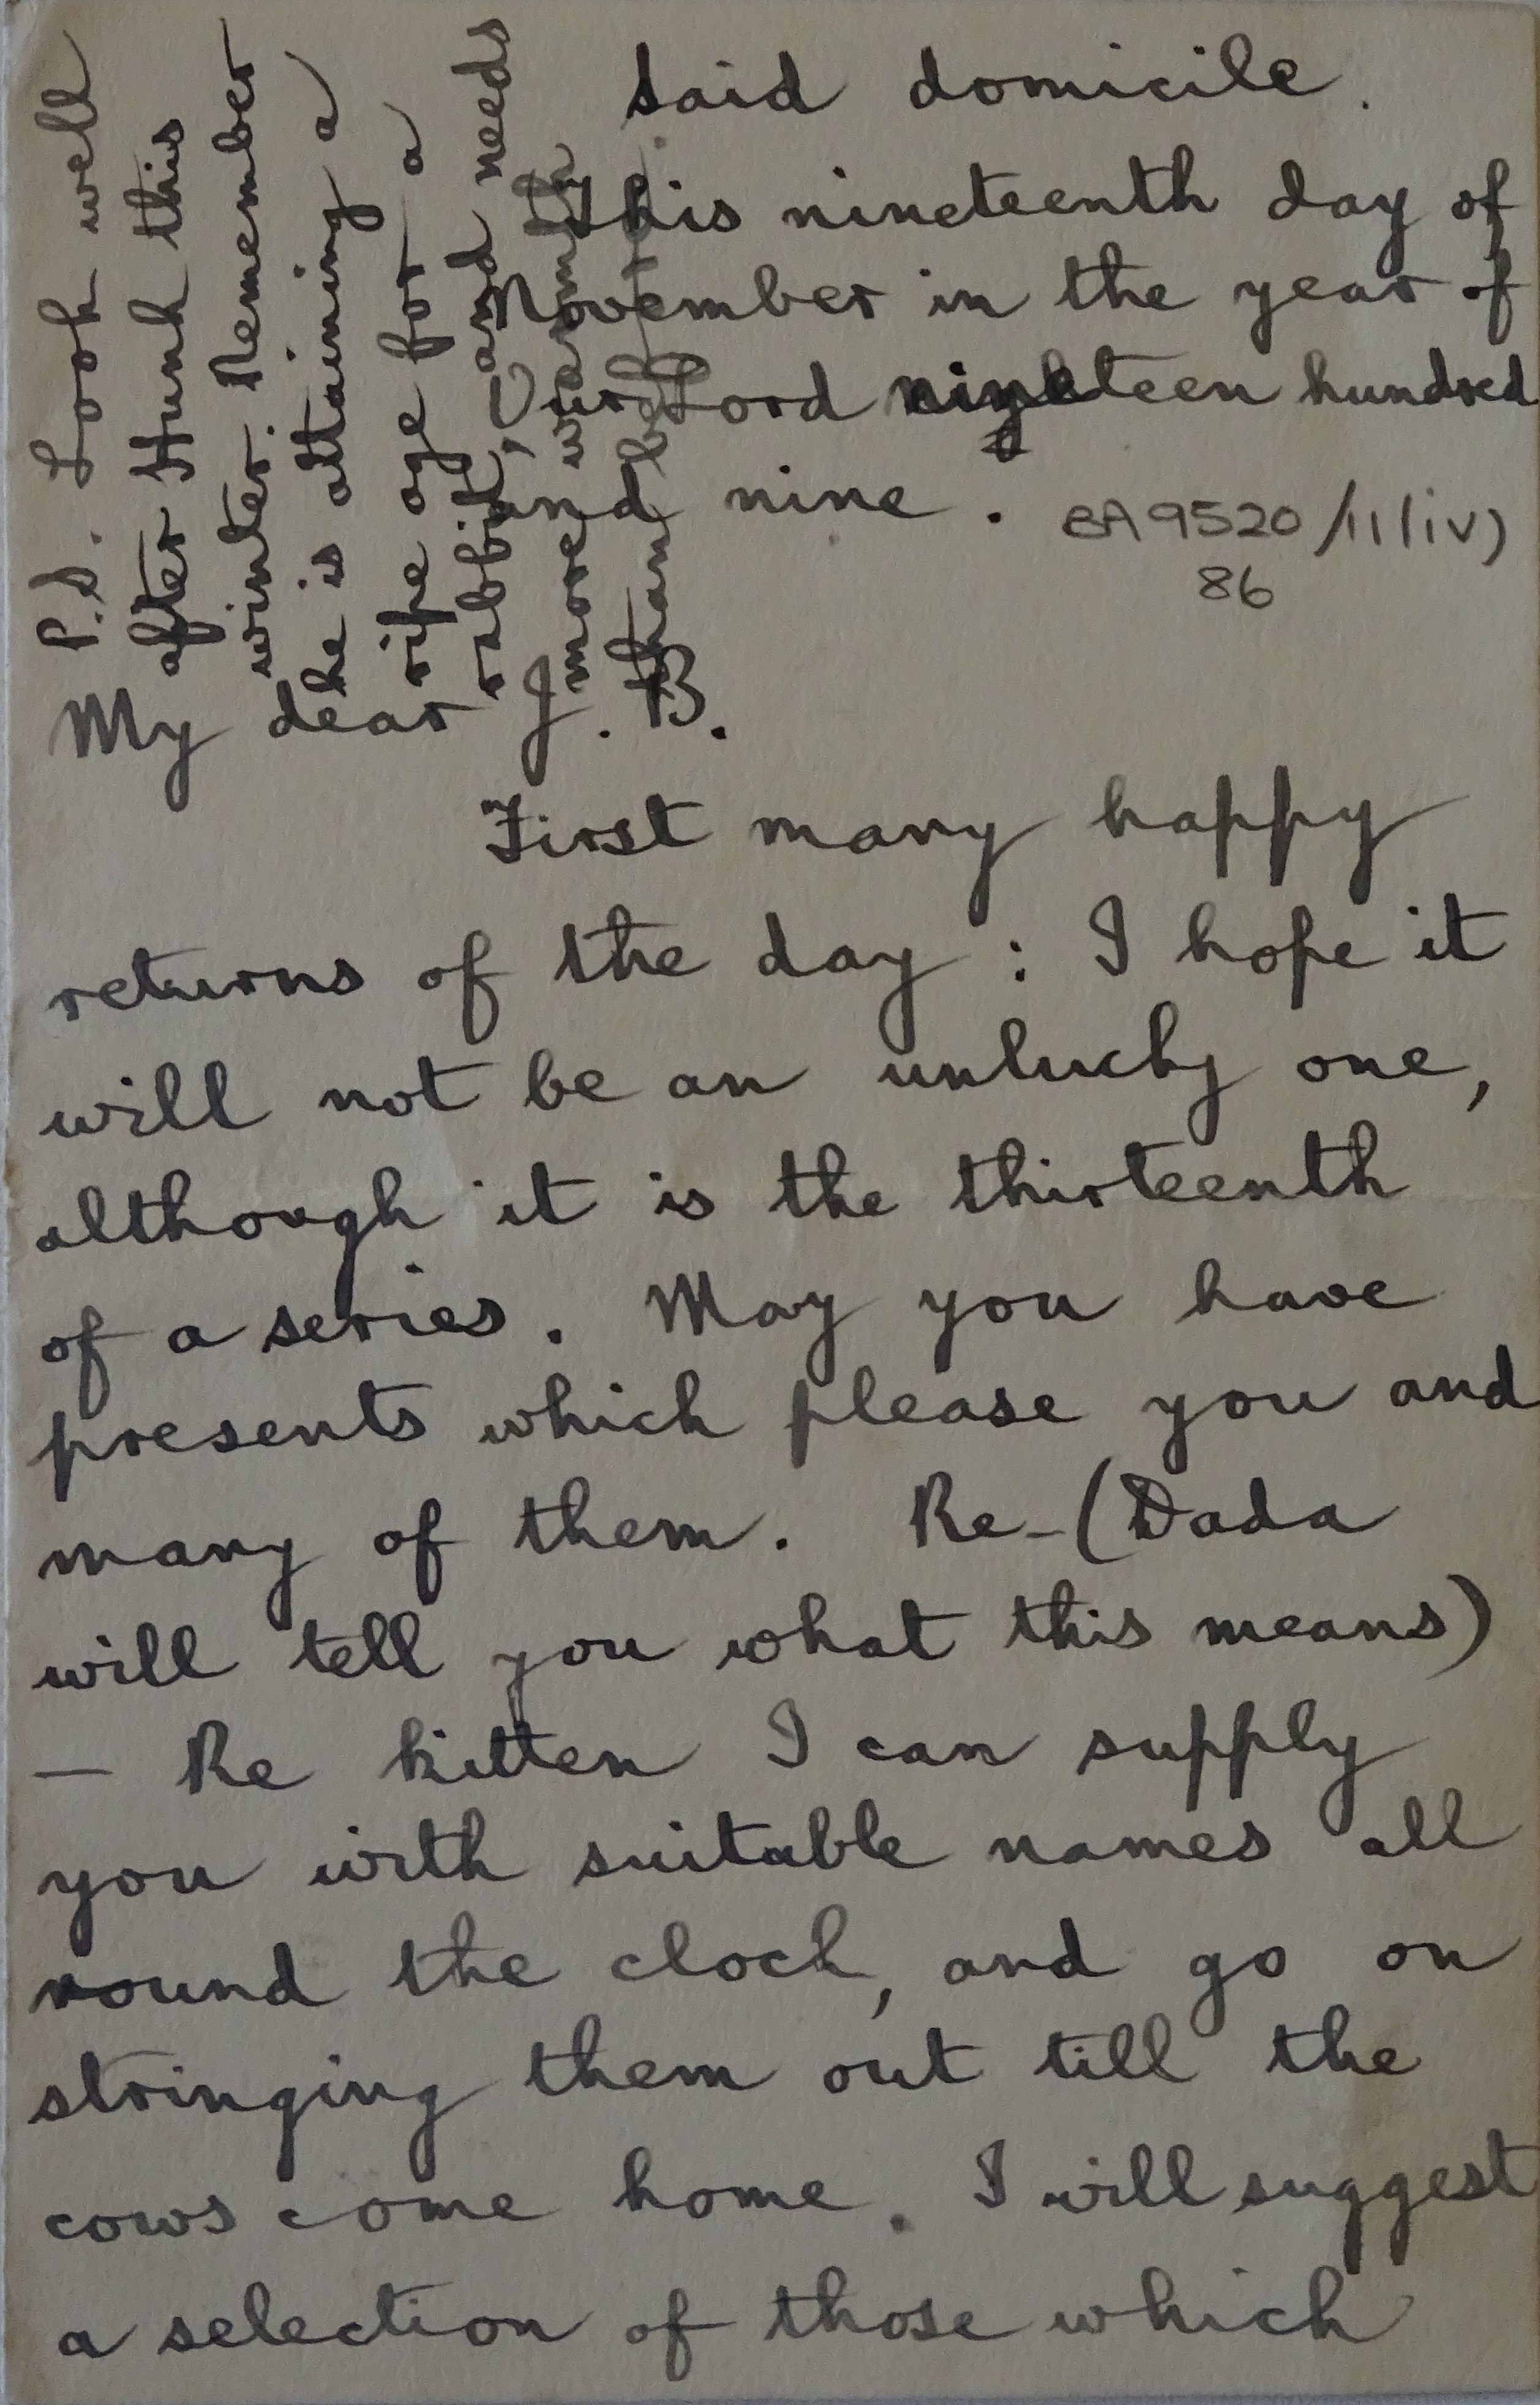 said domicile.
This nineteenth day of
November in the year of
Our Lord nineteen hundred
and nine.
EA 9520/11(iv)
86
My dear J. B.
First many happy
returns of the day: I hope it
will not be an unlucky one,
although it is the thirteenth
of a series. May you have
presents which please you and
many of them. Re-(Dada
will tell you what this means)
— Re kitten I can supply
you with suitable names all
round the clock, and go on
stringing them out till the
cows come home. I will suggest
a selection of those which
P.S. Look well
after Hunk this
winter. Remember
he is attaining a
ripe age for a
rabbit, and needs
more warmth
than